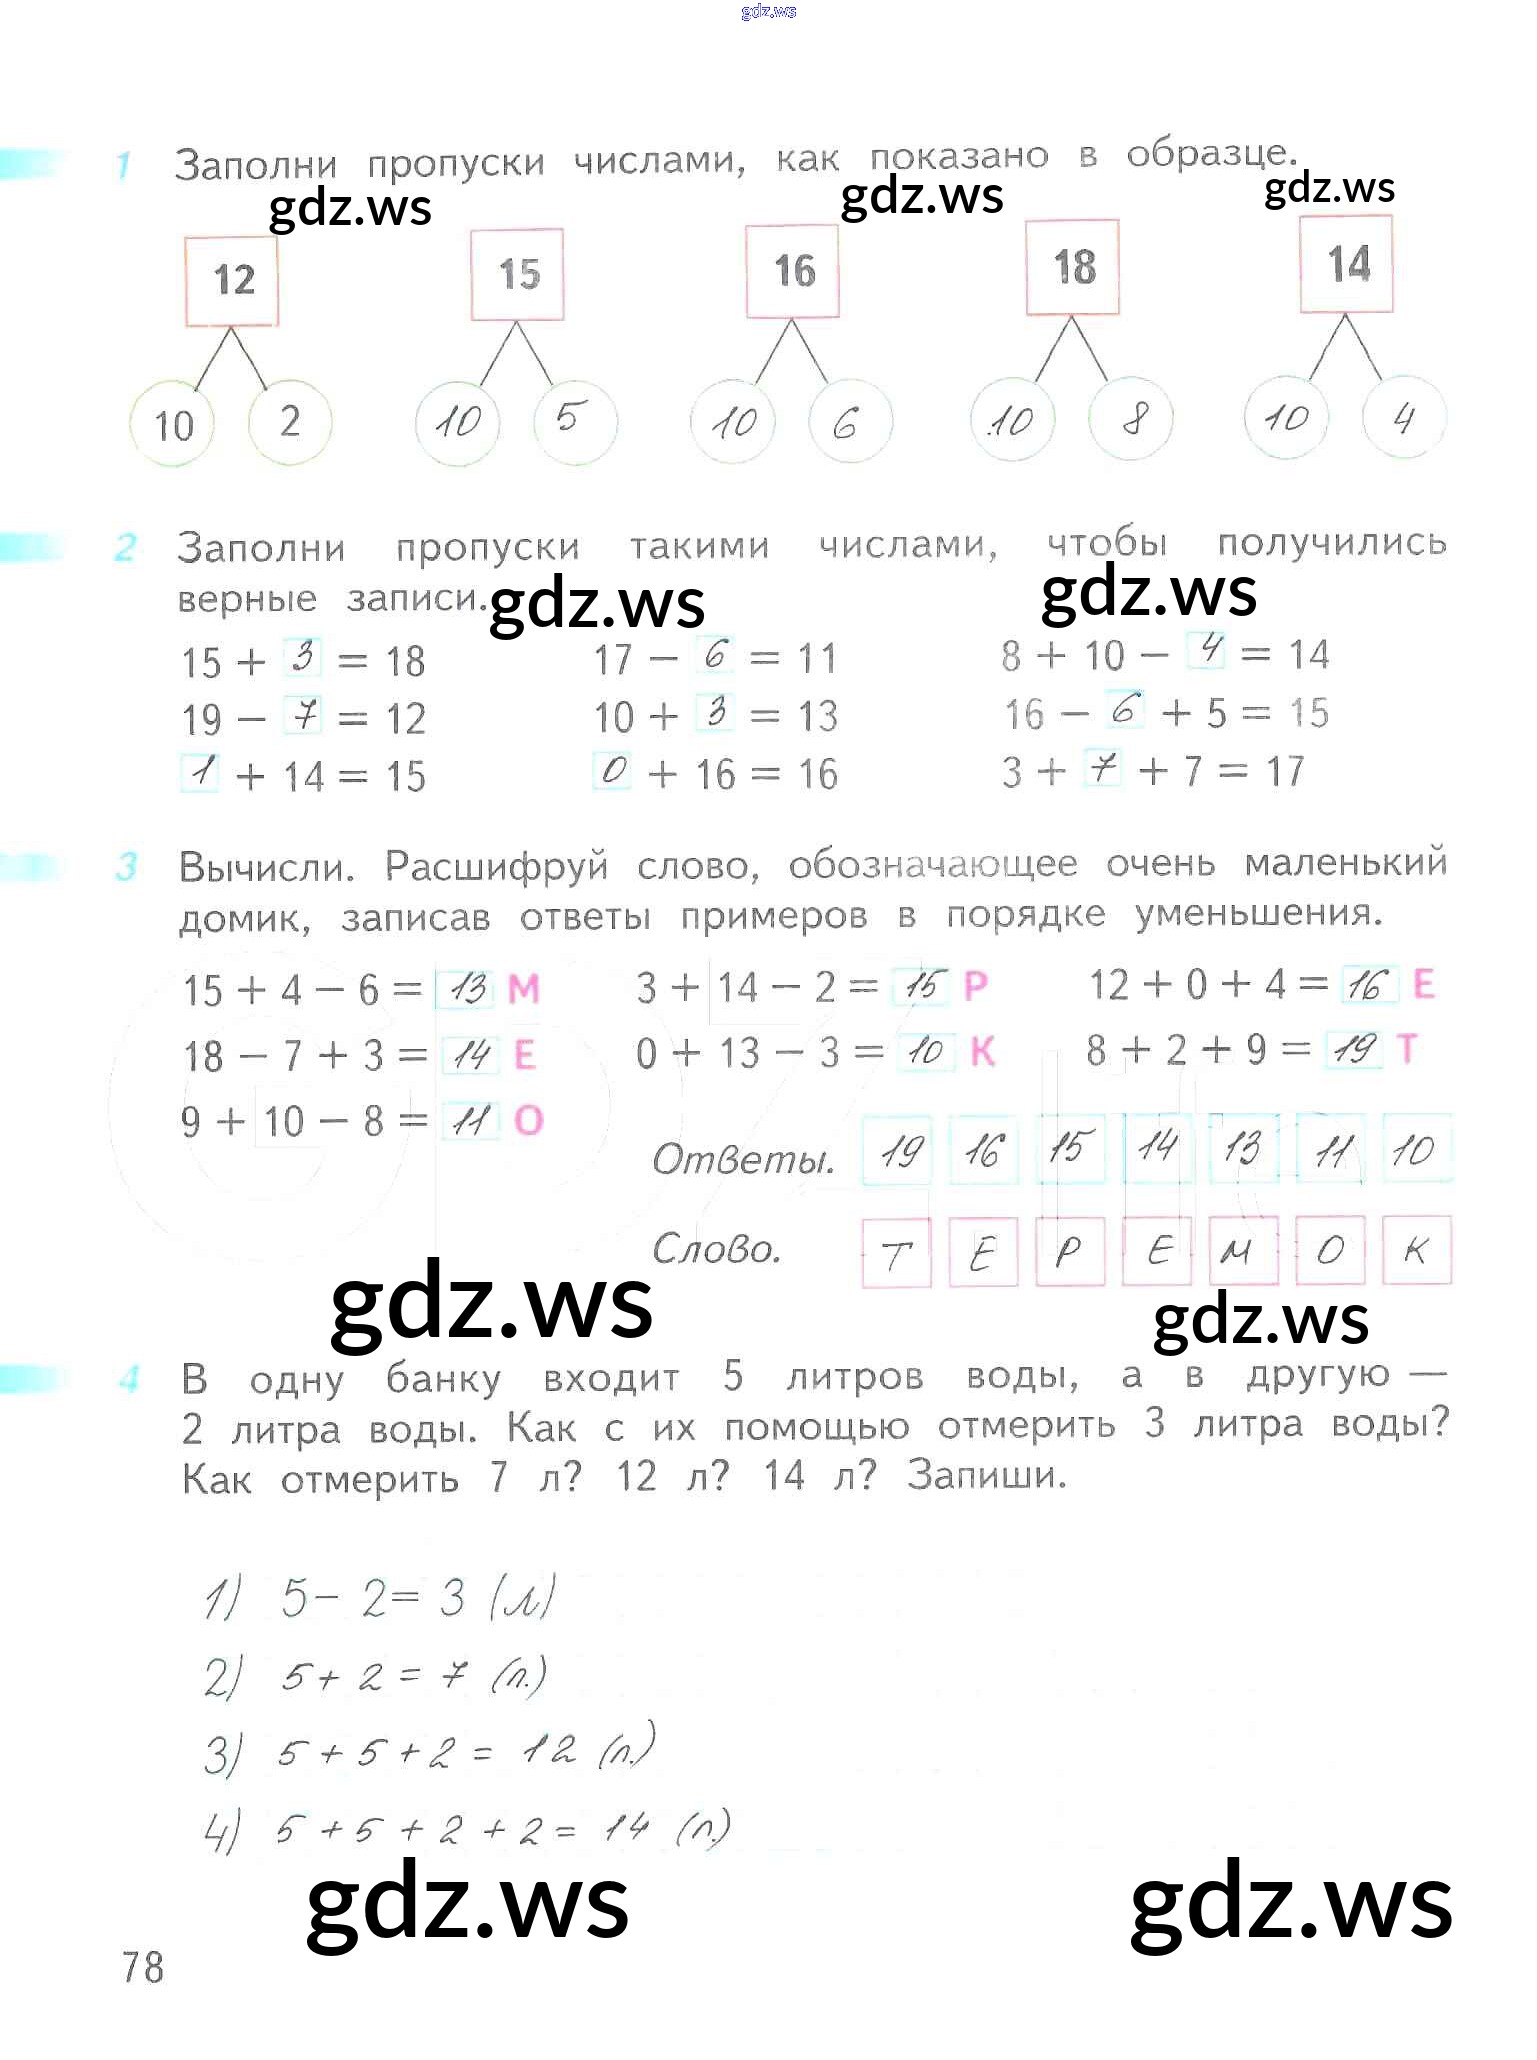 gdz.ws
1 Заполни пропуски числами, как показано в образце.
gdz.ws gdz.ws gdz.ws
12 15 16 18 14
10 2 10 5 10 6 10 8 10 4
2 Заполни пропуски такими числами, чтобы получились
верные записи.
gdz.ws gdz.ws
15 + 3 = 18 17 − 6 = 11 8 + 10 − 4 = 14
19 − 7 = 12 10 + 3 = 13 16 − 6 + 5 = 15
1 + 14 = 15 0 + 16 = 16 3 + 7 + 7 = 17
3 Вычисли. Расшифруй слово, обозначающее очень маленький
домик, записав ответы примеров в порядке уменьшения.
15 + 4 − 6 = 13 М 3 + 14 − 2 = 15 Р 12 + 0 + 4 = 16 Е
18 − 7 + 3 = 14 Е 0 + 13 − 3 = 10 К 8 + 2 + 9 = 19 Т
9 + 10 − 8 = 11 О
Ответы. 19 16 15 14 13 11 10
Слово. Т Е Р Е М О К
gdz.ws gdz.ws
4 В одну банку входит 5 литров воды, а в другую —
2 литра воды. Как с их помощью отмерить 3 литра воды?
Как отмерить 7 л? 12 л? 14 л? Запиши.
1) 5 − 2 = 3 (л)
2) 5 + 2 = 7 (л.)
3) 5 + 5 + 2 = 12 (л.)
4) 5 + 5 + 2 + 2 = 14 (л.)
gdz.ws gdz.ws
78